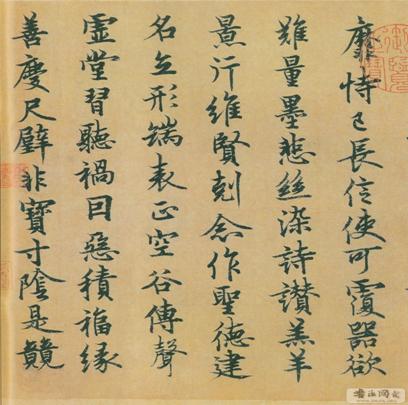 靡恃己長信使可覆器欲
難量墨悲絲染詩讚羔羊
景行維賢剋念作聖德建
名立形端表正空谷傳聲
虛堂習聽禍因惡積福緣
善慶尺璧非寶寸陰是競